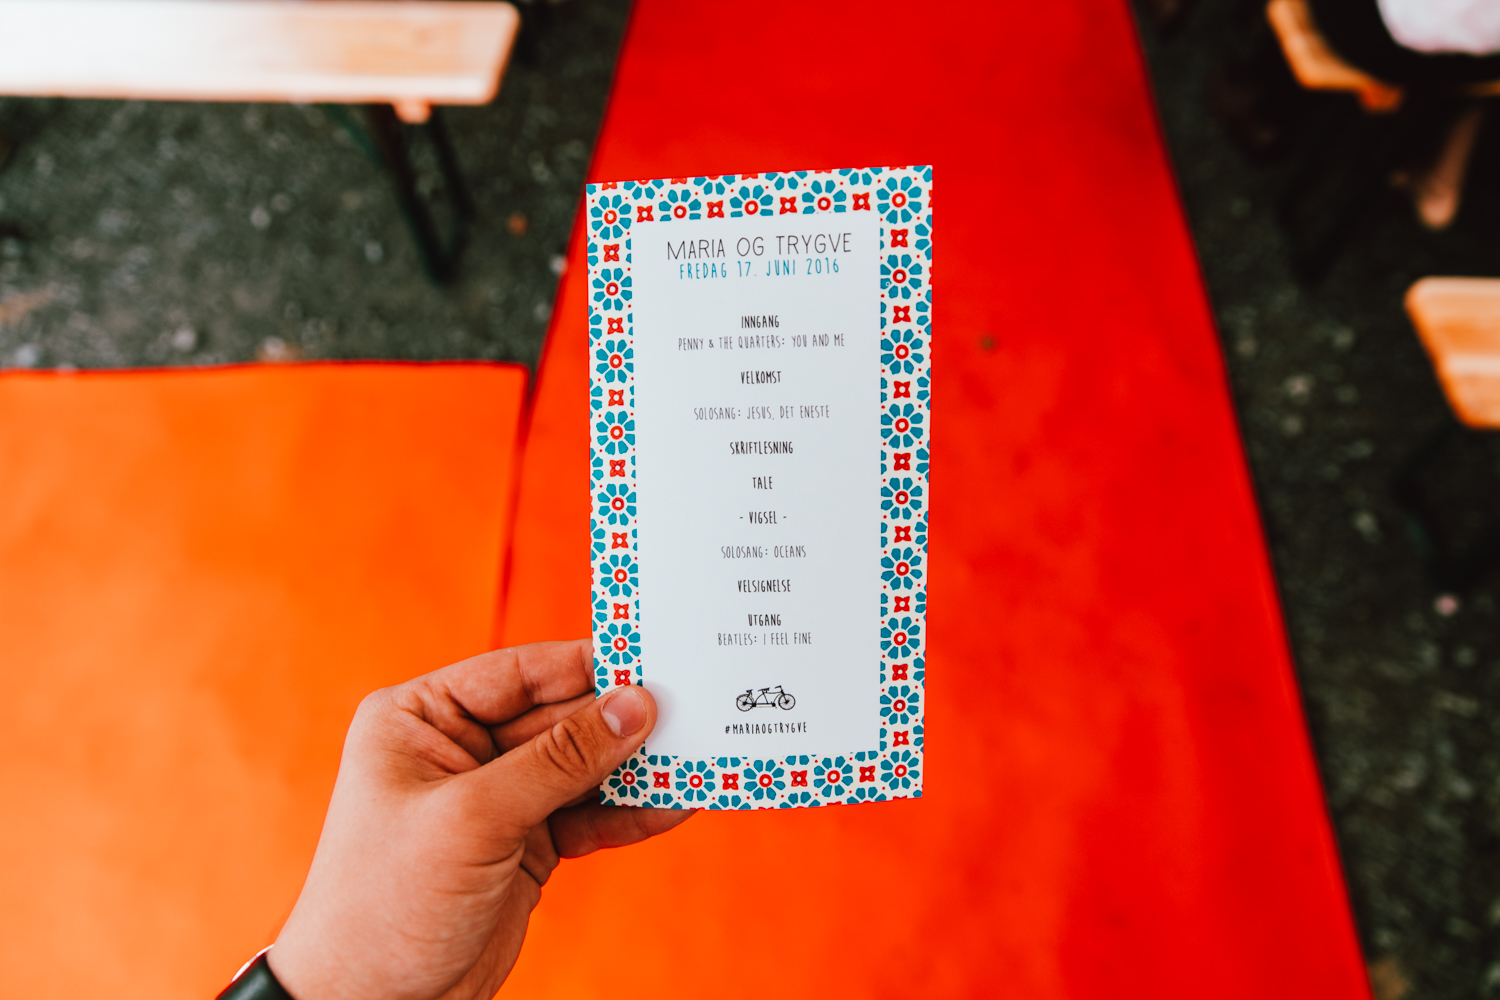 MARIA OG TRYGVE
FREDAG 17. JUNI 2016
INNGANG
PENNY & THE QUARTERS: YOU AND ME
VELKOMST
SOLOSANG: JESUS, DET ENESTE
SKRIFTLESNING
TALE
- VIGSEL -
SOLOSANG: OCEANS
VELSIGNELSE
UTGANG
BEATLES: I FEEL FINE
#MARIAOGTRYGVE